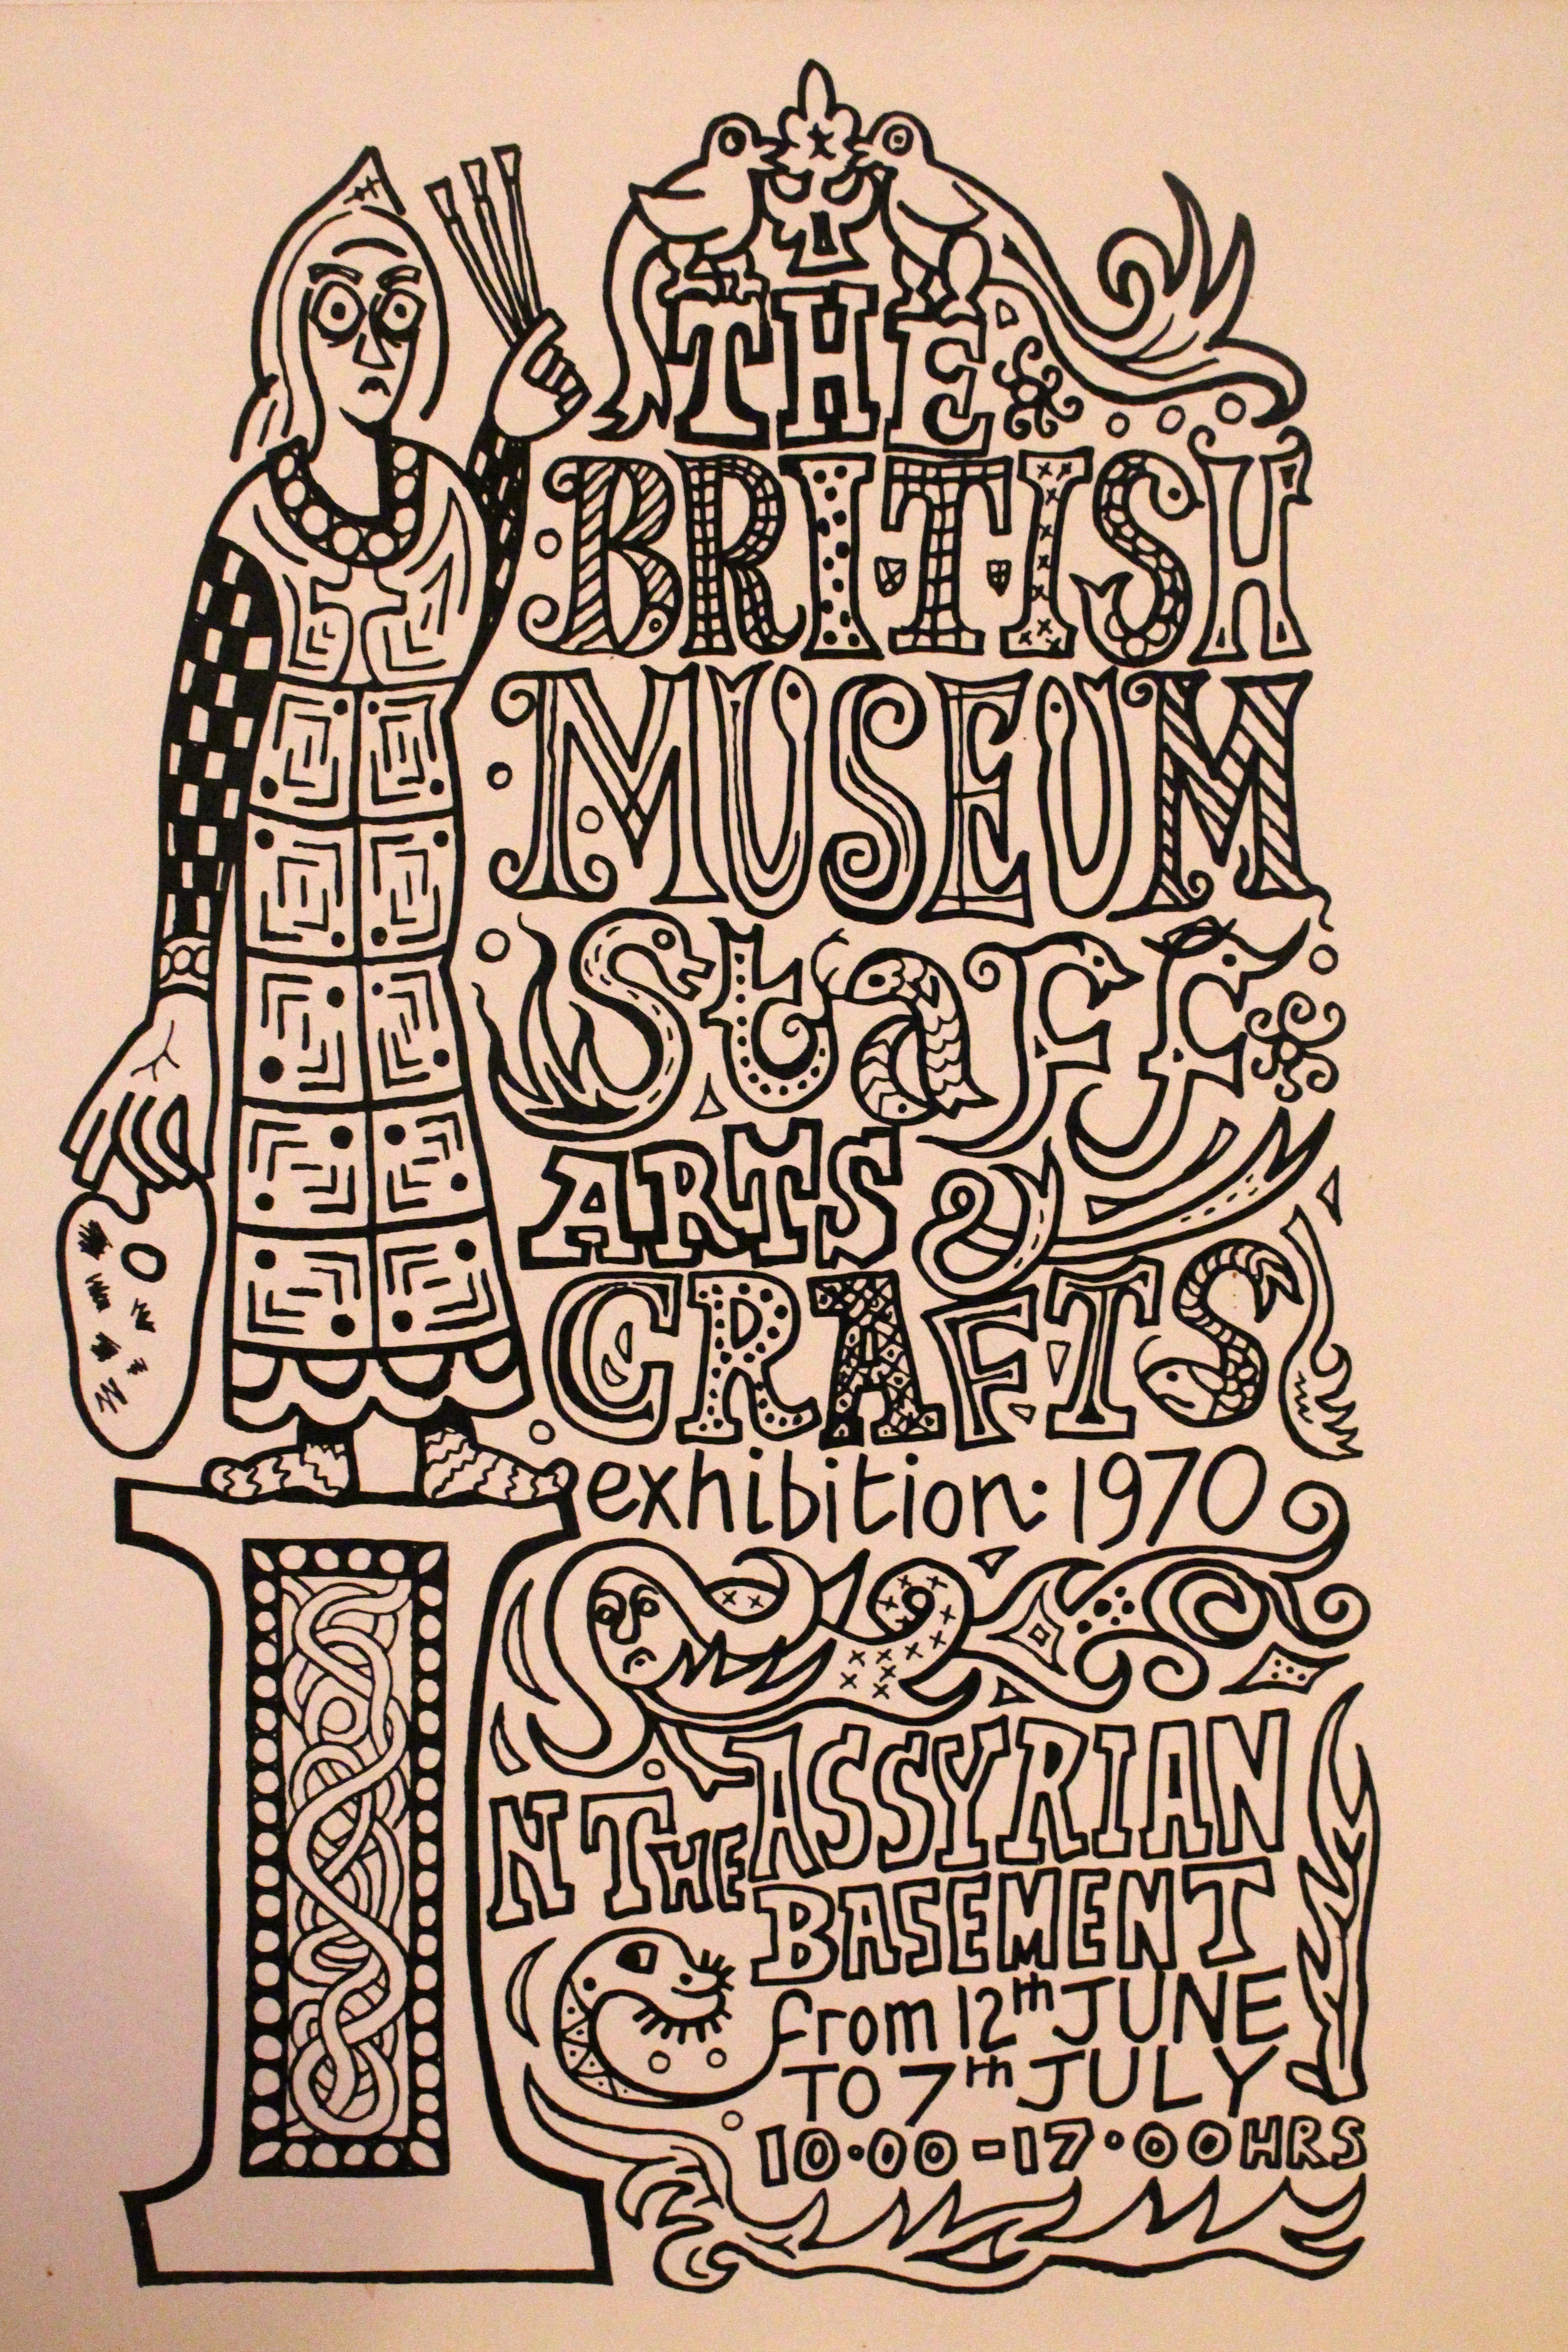 THE
BRITISH
MUSEUM
Staff
ARTS &
CRAFTS
exhibition: 1970
IN THE ASSYRIAN
BASEMENT
from 12th JUNE
TO 7th JULY
10·00-17·00HRS